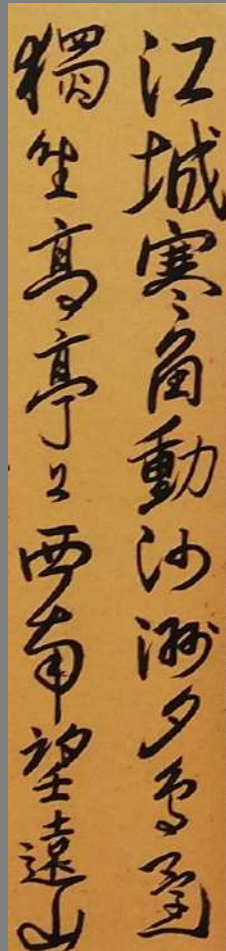 江城寒角動沙洲夕鳥還
獨坐高亭上西南望遠山